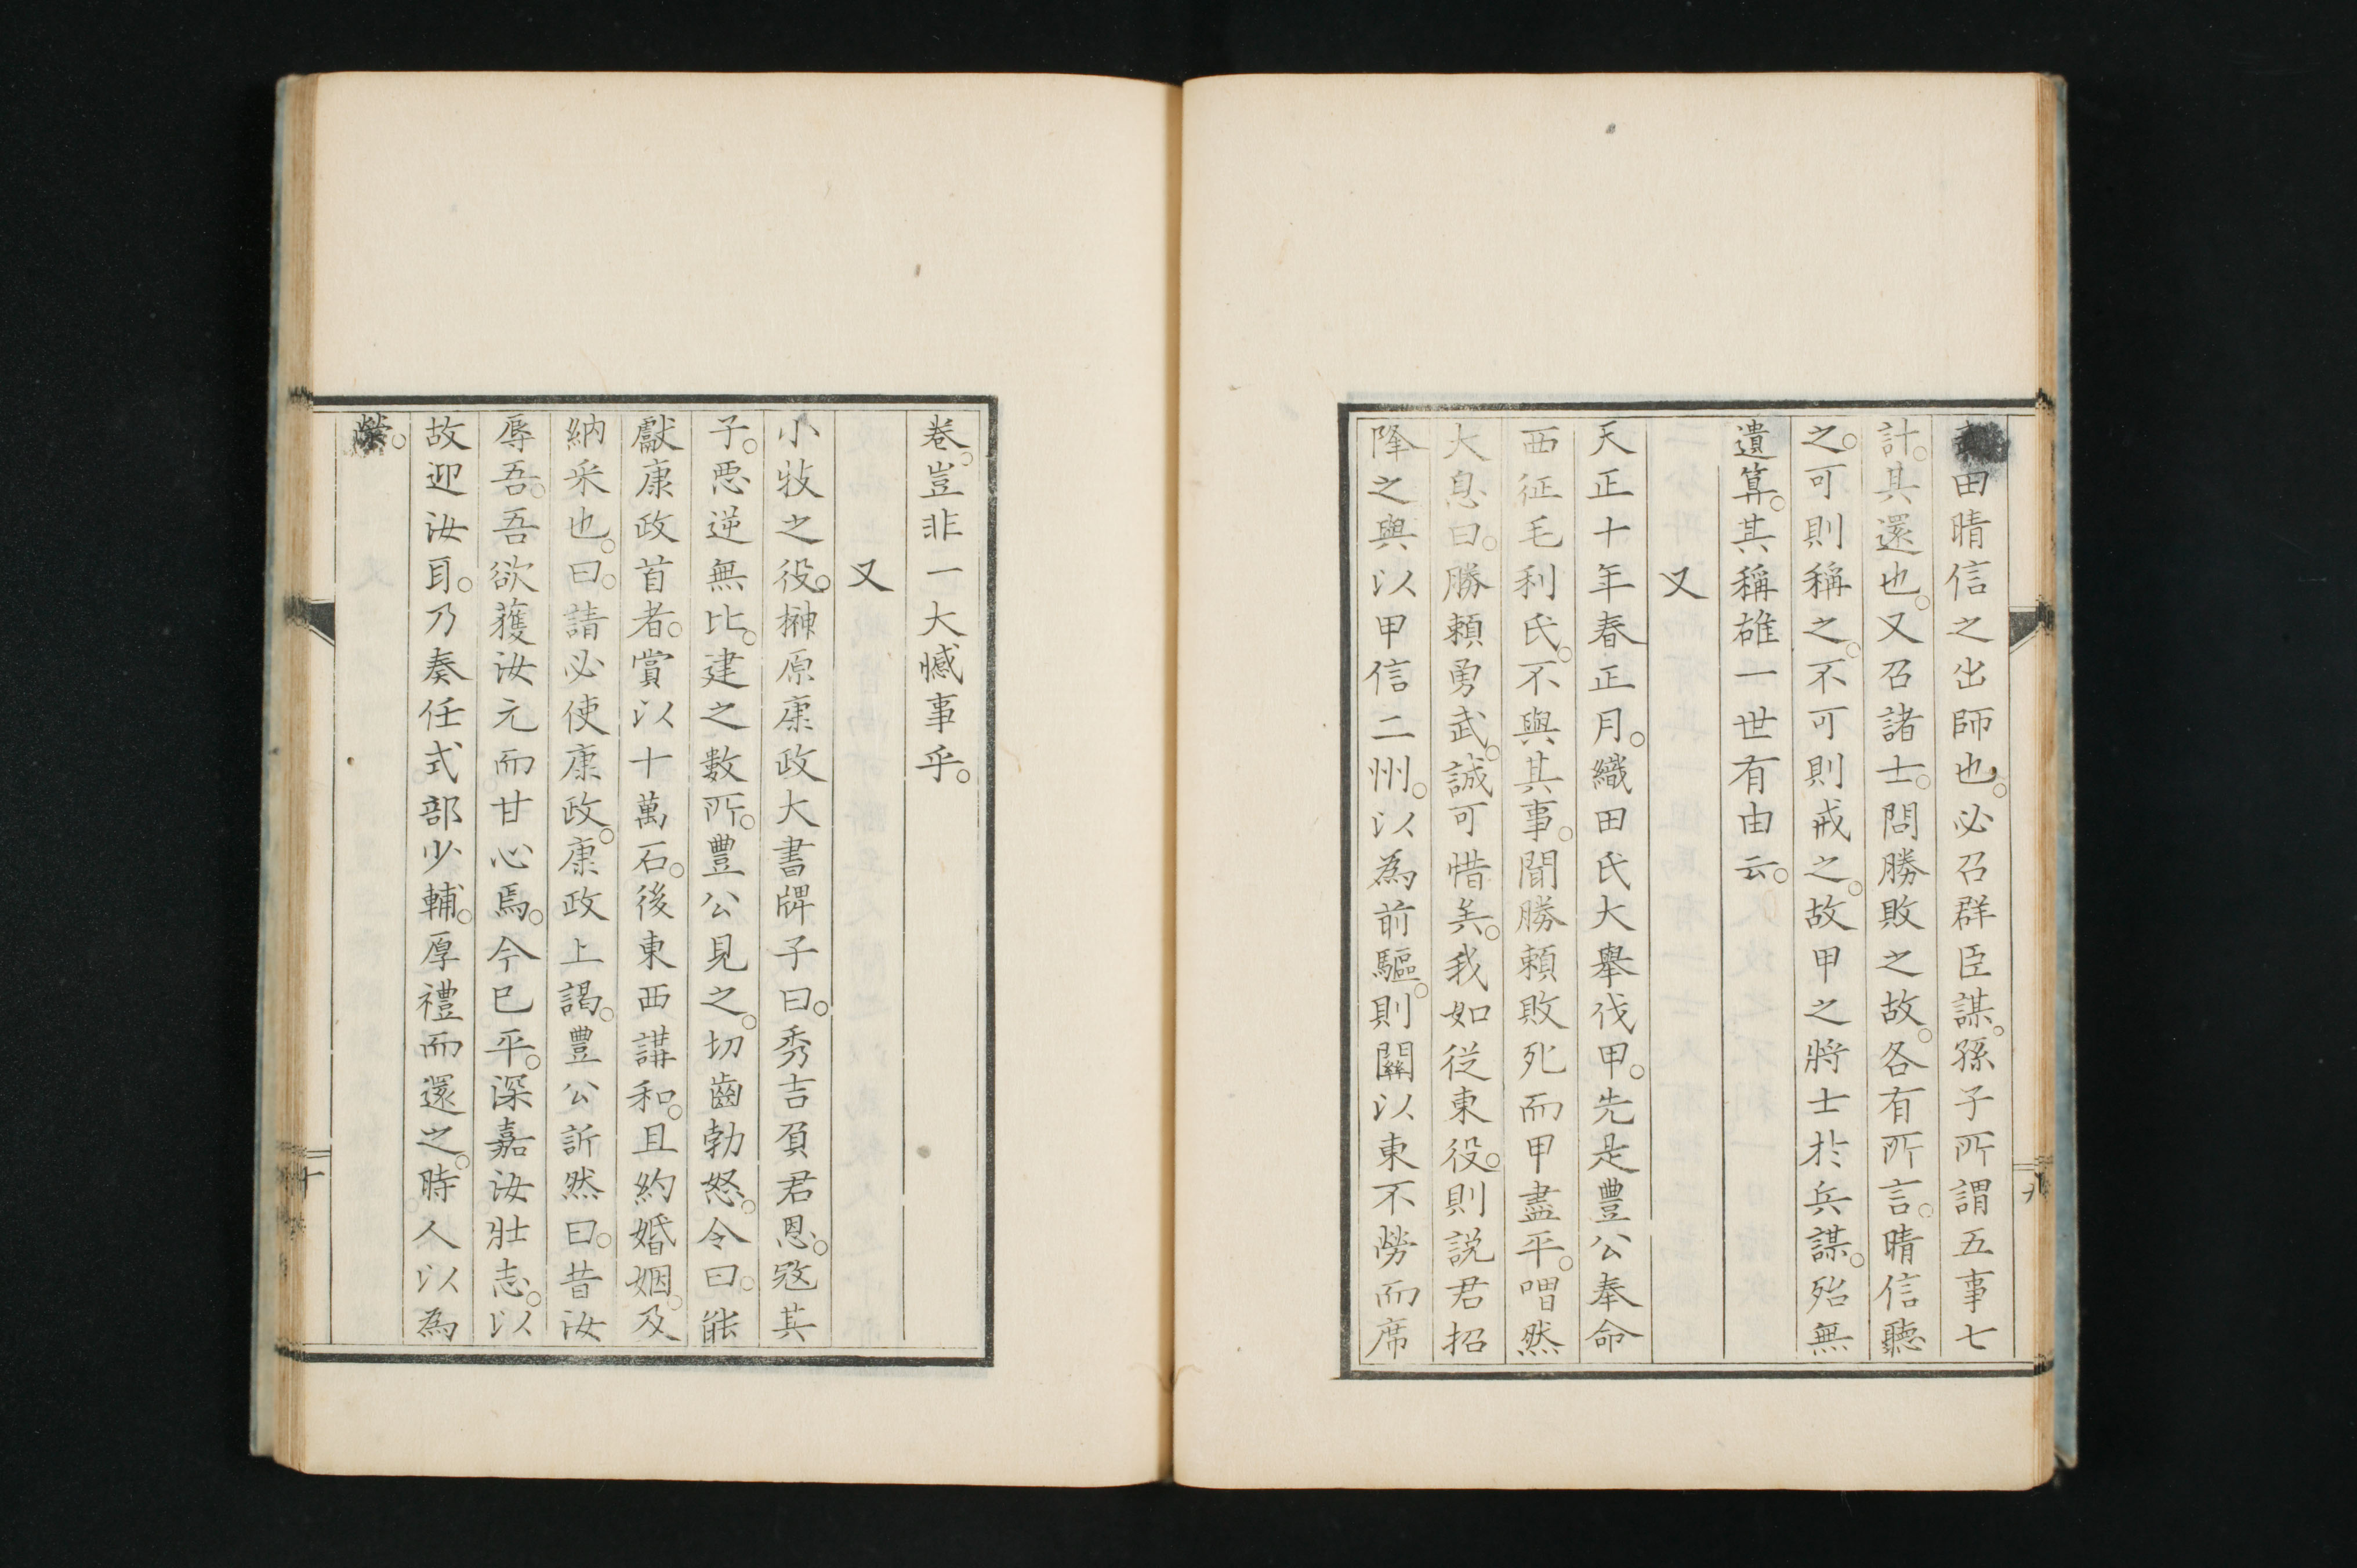 田晴信之出師也。必召群臣謀。孫子所謂五事七
計。其還也。又召諸士。問勝敗之故。各有所言。晴信聽
之。可則稱之。不可則戒之。故甲之將士於兵謀。殆無
遺算。其稱雄一世有由云。
又
天正十年春正月。織田氏大舉伐甲。先是豐公奉命
西征毛利氏。不與其事。聞勝賴敗死而甲盡平。喟然
大息曰。勝賴勇武。誠可惜矣。我如從東役。則説君招
降之與以甲信二州。以為前驅。則關以東不勞而席
九
卷。豈非一大憾事乎。
又
小牧之役。榊原康政大書牌子曰。秀吉負君恩。寇其
子。惡逆無比。建之數所。豐公見之。切齒勃怒。令曰。能
獻康政首者。賞以十萬石。後東西講和。且約婚姻。及
納采也。曰。請必使康政。康政上謁。豐公訢然曰。昔汝
辱吾。吾欲獲汝元而甘心焉。今已平。深嘉汝壯志。以
故迎汝耳。乃奏任式部少輔。厚禮而還之。時人以為
榮。
十